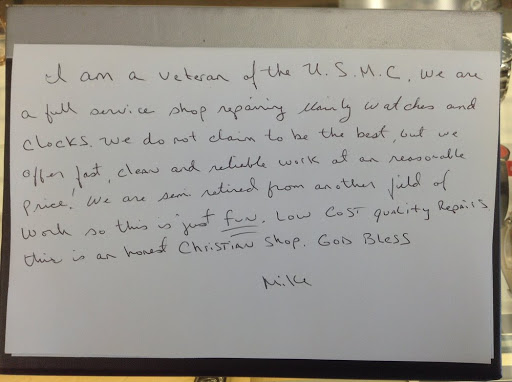 I am a veteran of the U.S.M.C. We are
a full service shop repairing Mainly watches and
clocks. We do not claim to be the best, but we
offer fast, clean and reliable work at an reasonable
price! We are semi retired from another field of
work so this is just fun. Low Cost quality Repairs
this is an honest Christian shop. God Bless
Mike